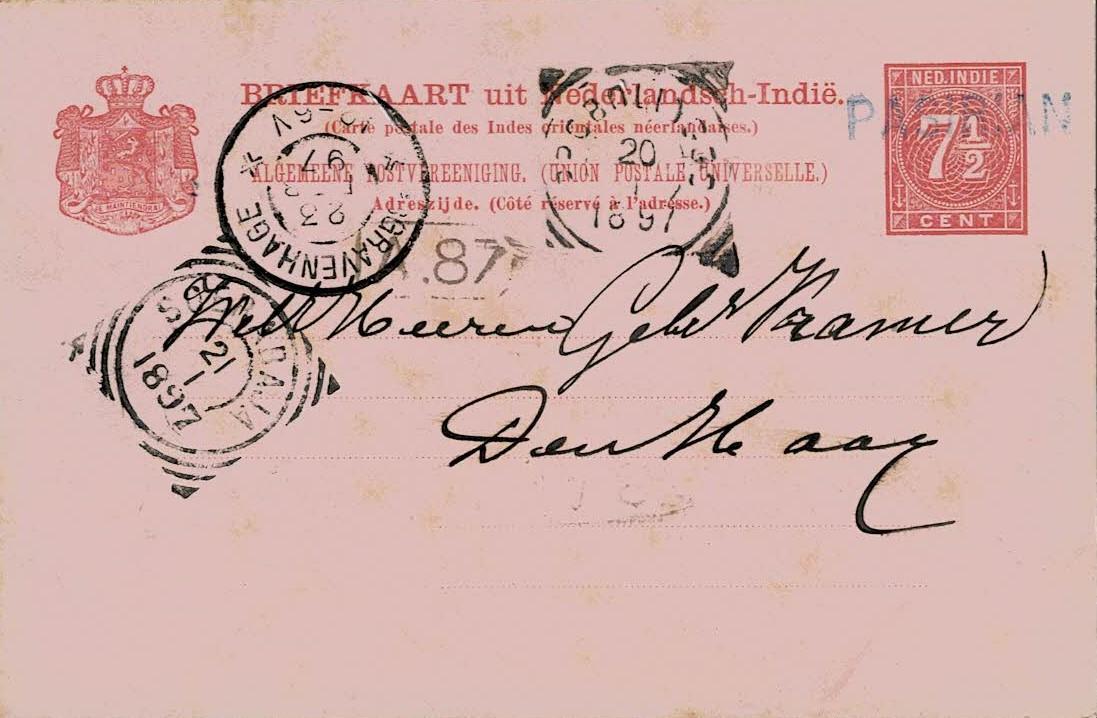 BRIEFKAART uit Nederlandsch-Indië.
(Carte postale des Indes orientales néerlandaises.)
ALGEMEENE POSTVEREENIGING. (UNION POSTALE UNIVERSELLE.)
Adreszijde. (Côté réservé à l'adresse.)
JE MAINTIENDRAI
NED. INDIE
7 1/2
CENT
'S GRAVENHAGE
23
97
PROBOLINGGO
20
1
1897
.87
SOERABAJA
21
1
1897
Heeren Gebr Kramer
Den Haag